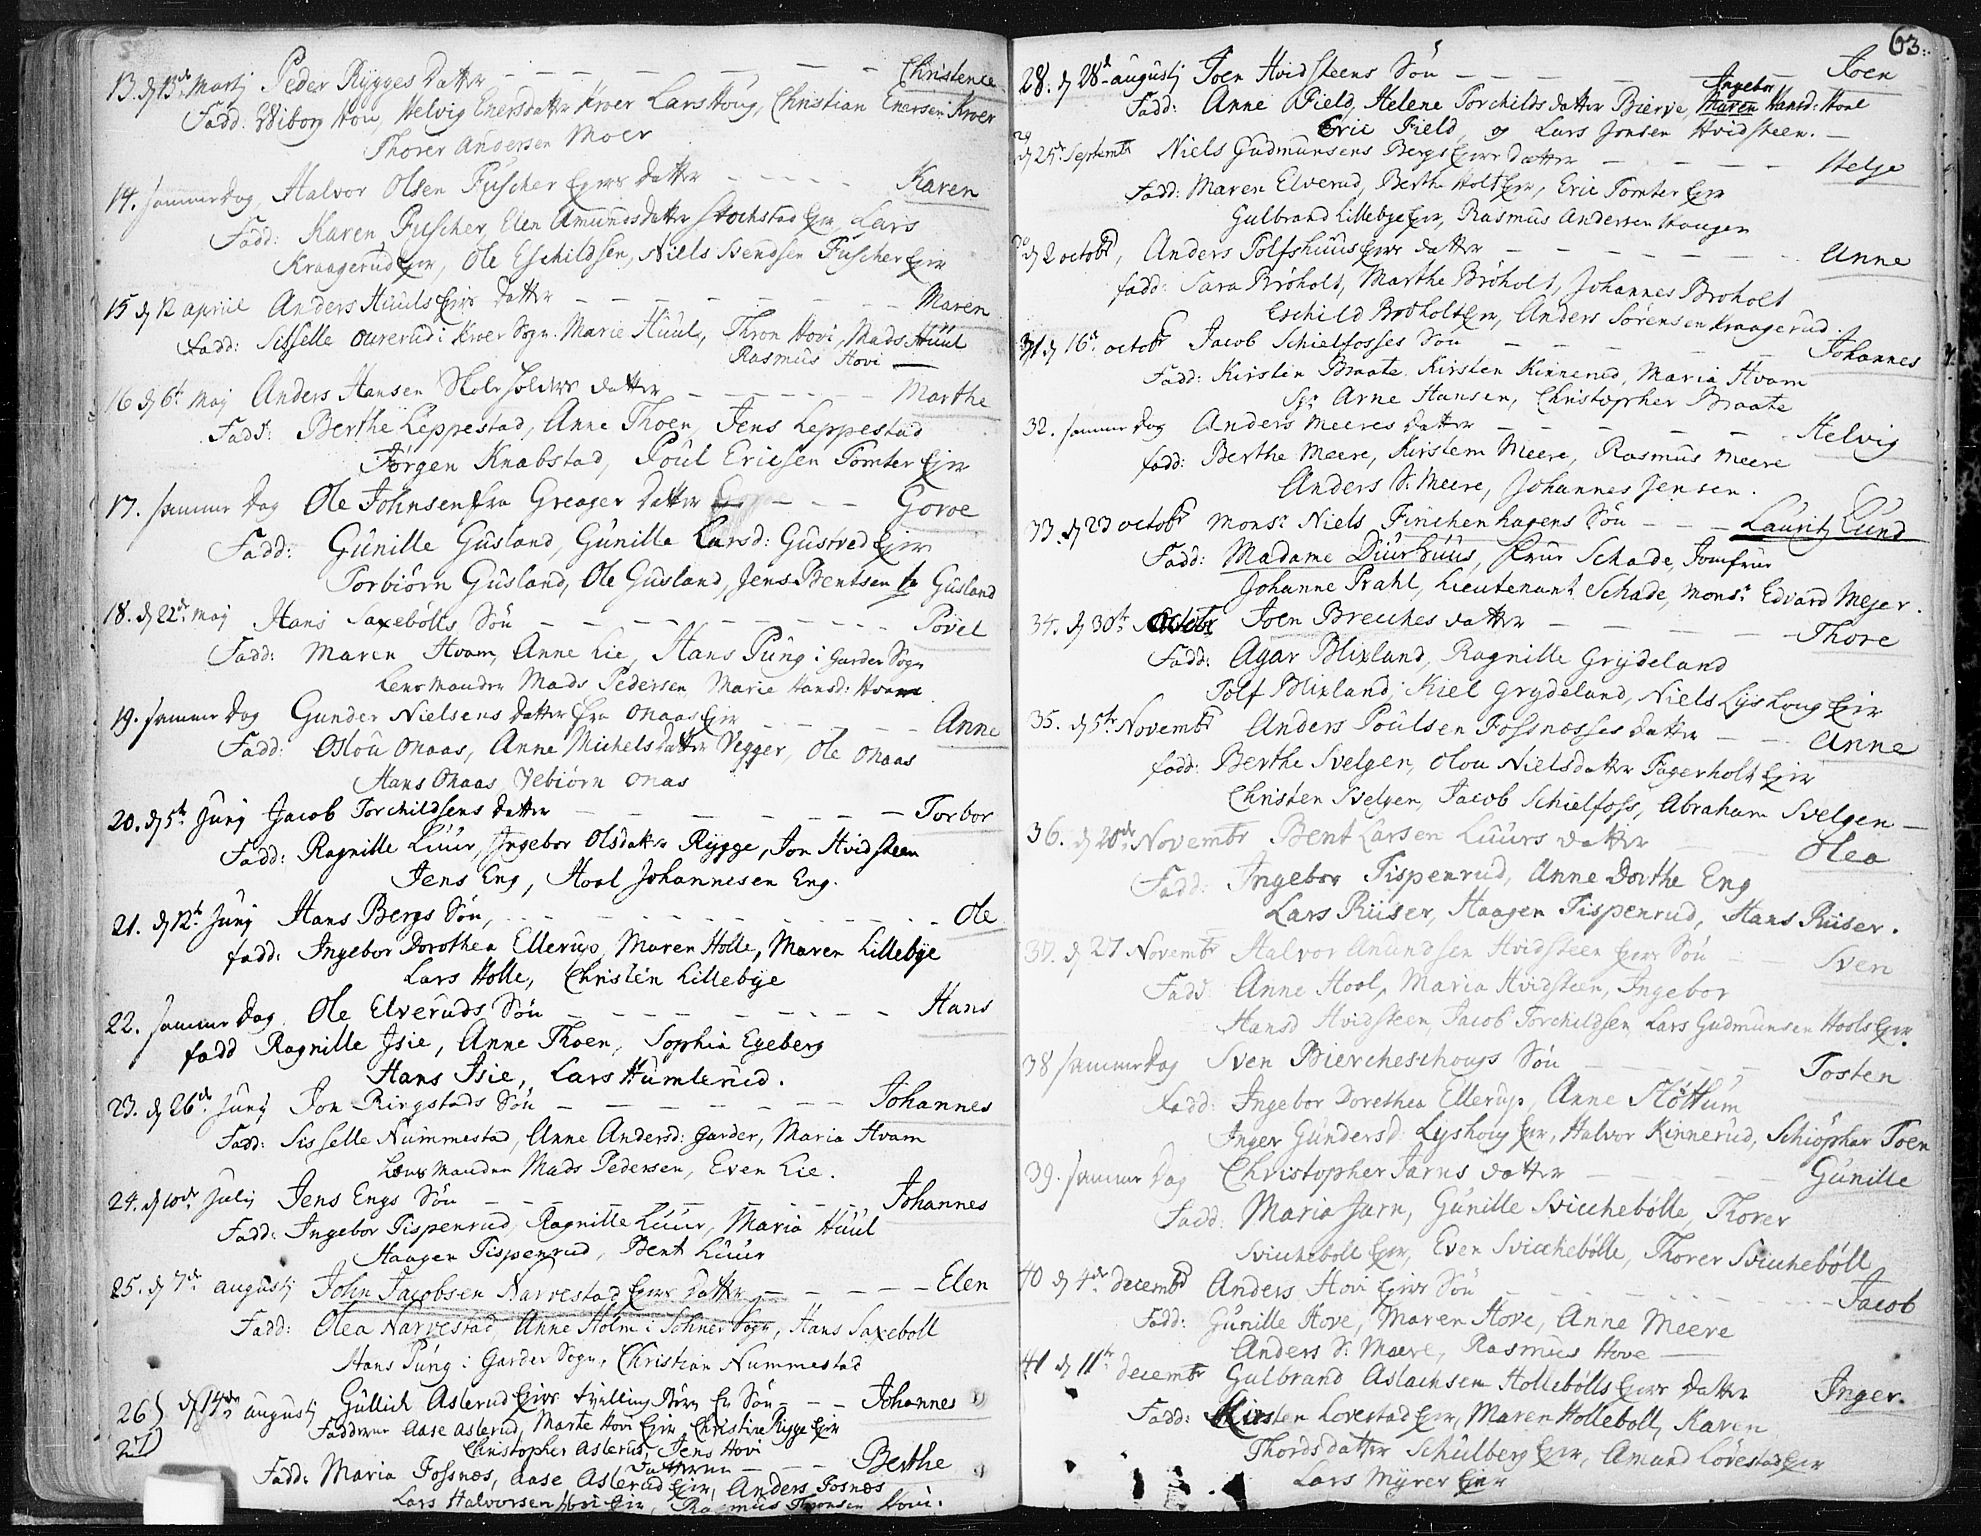 13. d 13de Martj Peder Rygges Datter - - - - - - Christence
Fadd: Wiborg Hou, Helvig Enersdatter Kroer Lars Houg, Christian Enersen Kroer
Thorer Andersen Moer
14. Sammer Dag, Halvor Olsen Fuscher Eiers Datter - - - - - Karen
Fadd: Karen Fuscher, Elen Amundsdatter Stochstad Eier, Lars
Kraagerud Eier, Ole Eschildsen, Niels Svendsen Fuscher Eier
15 d 12 april Anders Huuls Eiers Datter - - - - - - Maren
Fadd: Sisselle Ourerud i Kroer Sogn. Marie Huul, Thron Hovi, Mads Huul
Rasmus Hovi
16 d 6t Maj Anders Hansen Skoleholders Datter - - - - - Marthe
Fadd: Berthe Leppestad, Anne Thoen, Jens Leppestad
Jørgen Knabstad, Poul Ericsen Tomter Eier
17. Sammer Dag Ole Johnsen fra Greager Datter - - - Goroe
Fadd: Gunille Gusland, Gunille Larsd: Gustved Eier
Torbiörn Gusland, Ole Gusland, Jens Bentsen Gusland
18. d 22de Maj Hans Saxebølls Søn - - - - - - Povel
Fadd: Maren Hvam, Anne Lie, Hans Pung i Garder Sogn
Lensmanden Mads Pedersen Marie Hansd: Hvam
19. Sammer Dag Gunder Nielsens Datter fra Onaas Eier - - - Anne
Fadd: Oslou Onaas, Anne Michelsdatter Vegger, Ole Onaas
Hans Onaas Vebiørn Onas
20. d 5te Junj Jacob Torchildsens Datter - - - - - - Torbor
Fadd: Ragnille Luur, Ingebor Olsdatter Rygge, Jon Hvidsteen
Jens Eng, Hoal Johannesen Eng.
21. d 12te Junj Hans Bergs Søn, - - - - - - Ole
Fadd: Ingebor Dorothea Ellerup, Maren Holle, Maren Lillebye
Lars Holle, Christen Lillebye
22. Sammer Dag. Ole Elveruds Søn - - - - - - Hans
Fadd Ragnille Isie, Anne Thoen, Sophia Egeberg
Hans Isie, Lars Humlerud.
23. d 26de Junj Jon Ringstads Søn - - - - - - Johannes
Fadd: Sisselle Nummestad, Anne Andersd: Garder, Maria Hvam
Lensmanden Mads Pedersen, Even Lie.
24. d 10de Julj Jens Engs Søn - - - - - - Johannes
Fadd: Ingebor Tispenrud, Ragnille Luur, Maria Huul
Haagen Tispenrud, Bent Luur
25. d 7de augustj John Jacobsen Narvestad Eiers Datter - - - - - Elen
Fadd: Olea Narvestad, Anne Holm i Sohner Sogn, Hans Saxeboll
Hans Pung i Garder Sogn, Christian Nummestad
26) d 14de augustj Gullich Aslerud Eiers tvilling Børn En Søn - - - Johannes
Fadderne Aase Aslerud, Marte Hovi Eier Christine Rygge Eier
27) Christopher Aslerud, Jens Hovi
Datteren - - - Berthe
Fadd: Maria Fossnæs, Aase Aslerud Eier, Anders Fosnæs
Lars Halvorsen Hovi Eier, Rasmus Thronsen Hovi.
63.
28. d 28de augustj Joen Hvidsteens Søn - - - - - - Joen
Ingebor
Fadd: Anne Field, Helene Torchilds datter Bierve, Maren Hansd: Hoal
Eric Field, og Lars Jonsen Hvidsteen.
29 d 25de Septembr Niels Gudmunsens Bergs Eiers Datter - - - - - Helje
Fadd: Maren Elverud, Berthe Holt Eier, Eric Tomter Eier
Gulbrand Lillebye Eier, Rasmus Andersen Haugen
30 d 2 octobr, Anders Tolfshuus Eiers Datter - - - - - - Anne
Fadd: Sara Brøholt, Marthe Brøholt, Johannes Broholt
Eschild Broholt Eier, Anders Sørensen Kraagerud.
31 d 16de octobr Jacob Schielfosses Søn - - - - - Johannes
Fadd: Kirsten Braate. Kirsten Kinnerud, Maria Hvam
Sr. Arne Hansen, Christopher Braate
32. Sammer Dag Anders Meeres Datter - - - - - - Helvig
Fadd: Berthe Meere, Kirstem Meere, Rasmus Meere
Anders S. Meere, Johannes Jensen.
33. d 23 octobr Monsr Niels Finchenhagens Søn - - - Lauritz Lund
Fadd: Madame Duurhuus, Frue Schade, Jomfrue
Johanne Prahl, Lieutenant Schade, Monsr Edvard Mejer.
34. d 30te Octobr Joen Brecches Datter - - - - - - Thore
Fadd: Agar Blixland, Ragnille Grydeland
Tolf Blixland, Kiel Grydeland, Niels Lyshoug Eier
35. d 5te Novembr Anders Poulsen Fossnæsses Datter - - - Anne
Fadd: Berthe Svelgen, Olou Nielsdatter Fagerholt Eier
Christen Svelgen, Jacob Schielfoss, Abraham Svelgen
36. d 20de Novembr Bent Larsen Luurs Datter - - Olea
Fadd: Ingebor Tispenrud, Anne Dorthe Eng
Lars Riiser, Haagen Tispenrud, Hans Riiser.
37. d 27 Novembr Halvor Amundsen Hvidsteen Eiers Søn - - Sven
Fadd: Anne Hoal, Maria Hvidsteen, Ingebor
Hansd Hvidsteen, Jacob Torchildsen, Lars Gudmunsen Hools Eier.
38 Sammer Dag Sven Biercheschougs Søn - - - - - Tosten
Fadd: Ingebor Dorethea Ellerup, Anne Støttum
Inger Gundersd: Lyshoug Eier, Halvor Kinnerud, Schiøphar Toen
39. Sammer Dag Christopher Jarns Datter - - - - - Gunille
Fadd: Maria Jarn, Gunille Svicchebølle, Thorer
Svicchebøll Eier, Even Svicchebølle, Thorer Svicchebøll
40 d 4de decembr Anders Hovi Eiers Søn - - - - - - Jacob
Fadd: Gunille Hove, Maren Hove, Anne Meere
Anders S: Meere, Rasmus Hove
41 d 11te decembr Gulbrand Aslachsen Hollebølls Eiers Datter Inger.
Fadd: Kirsten Lovestad Eier, Maren Hollebøll, Karen
Thordsdatter Schulberg Eier, Amund Lövestad Eier
Lars Myrer Eier